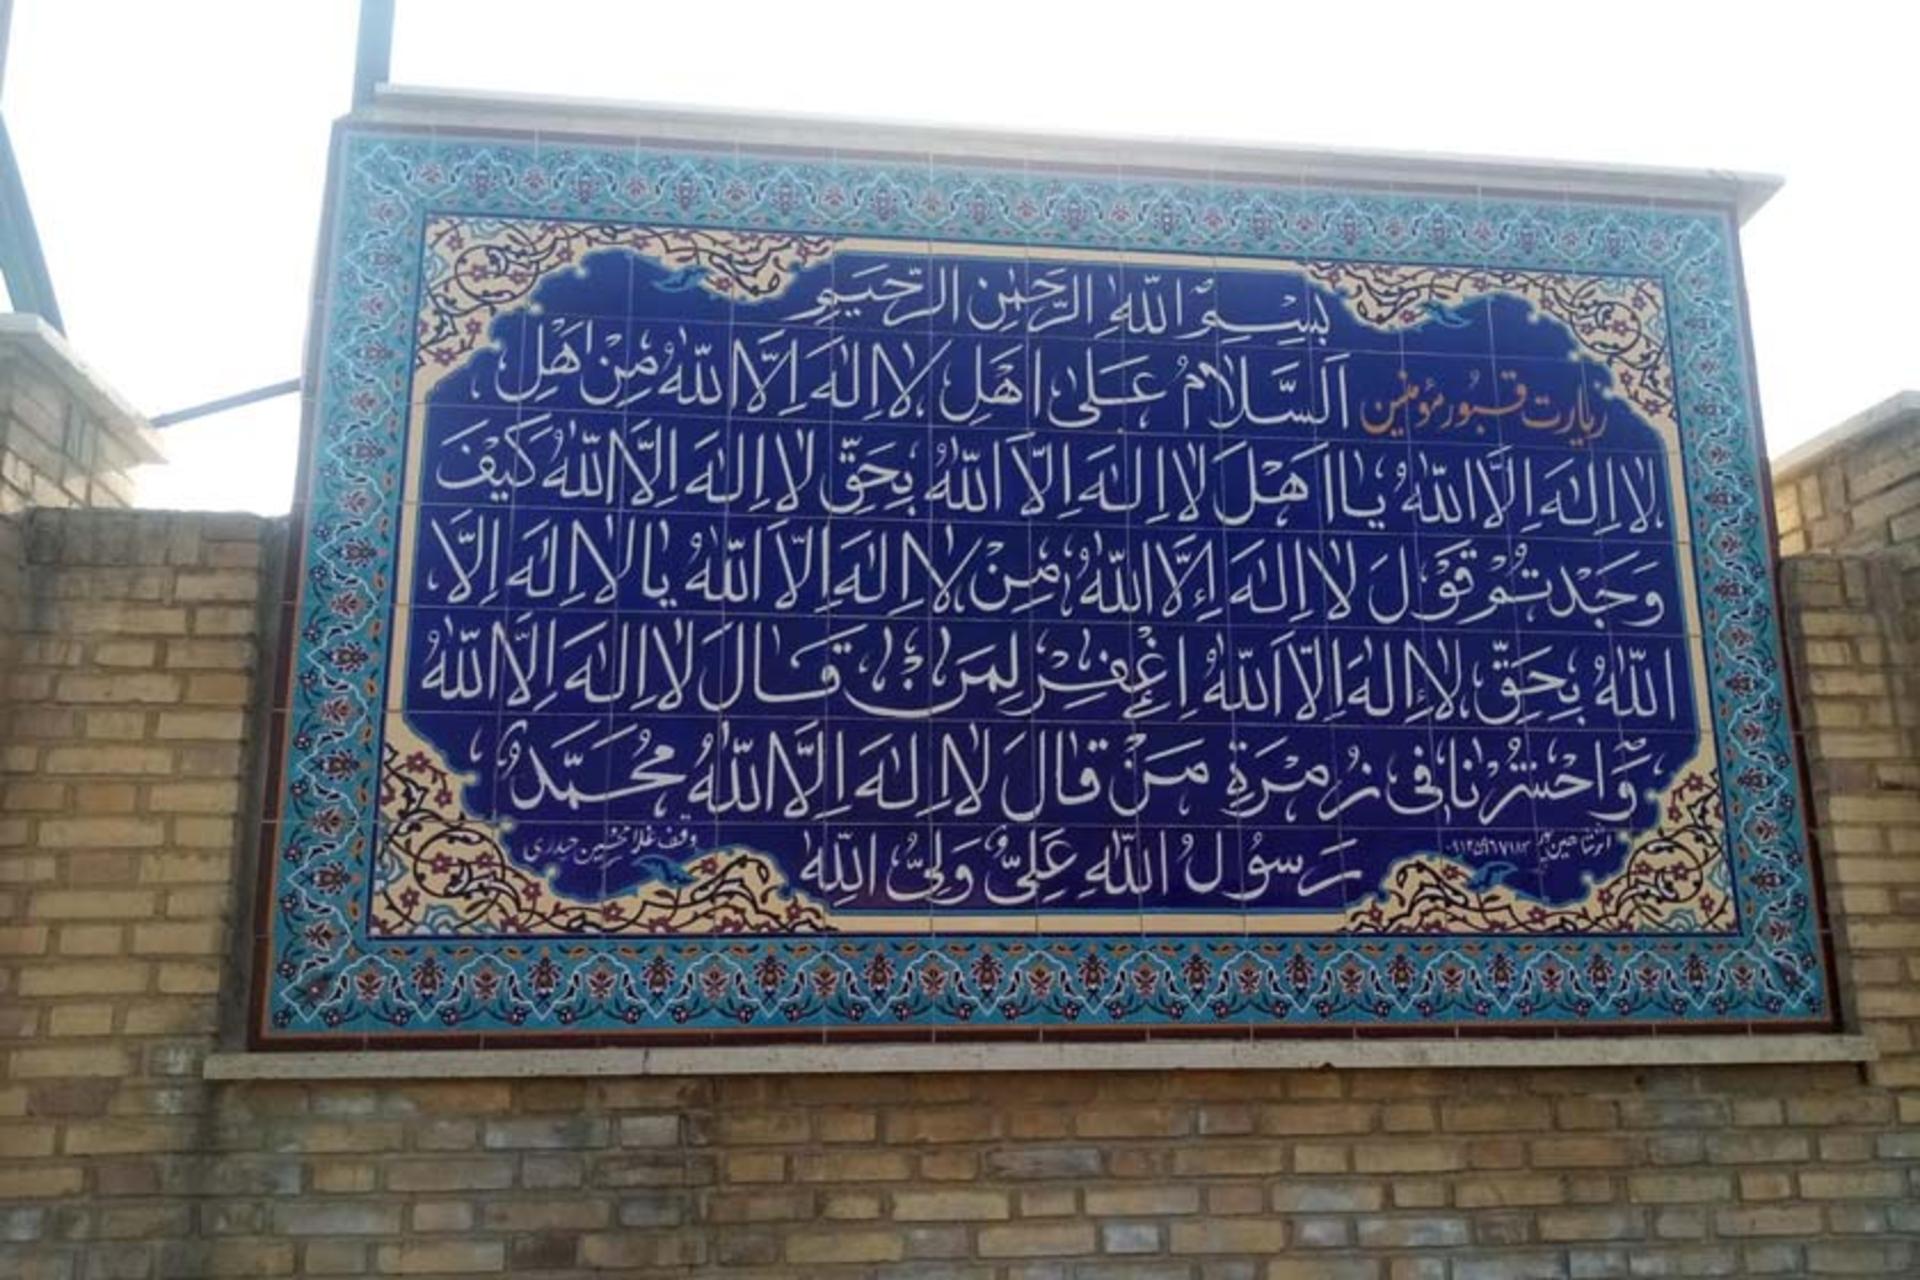 بِسْمِ اللّٰهِ الرَّحْمٰنِ الرَّحيمِ
زیارت قبور مؤمنین اَلسَّلامُ عَلىٰ اَهْلِ لا اِلٰهَ اِلَّا اللّٰهُ مِنْ اَهْلِ
لا اِلٰهَ اِلَّا اللّٰهُ يا اَهْلَ لا اِلٰهَ اِلَّا اللّٰهُ بِحَقِّ لا اِلٰهَ اِلَّا اللّٰهُ كَيْفَ
وَجَدْتُمْ قَوْلَ لا اِلٰهَ اِلَّا اللّٰهُ مِنْ لا اِلٰهَ اِلَّا اللّٰهُ يا لا اِلٰهَ اِلَّا
اللّٰهُ بِحَقِّ لا اِلٰهَ اِلَّا اللّٰهُ اِغْفِرْ لِمَنْ قالَ لا اِلٰهَ اِلَّا اللّٰهُ
وَاحْشُرْنا فى زُمْرَةِ مَنْ قالَ لا اِلٰهَ اِلَّا اللّٰهُ مُحَمَّدٌ
رَسُولُ اللّٰهِ عَلِىٌّ وَلِىُّ اللّٰهِ
وقف غلامحسین حیدری